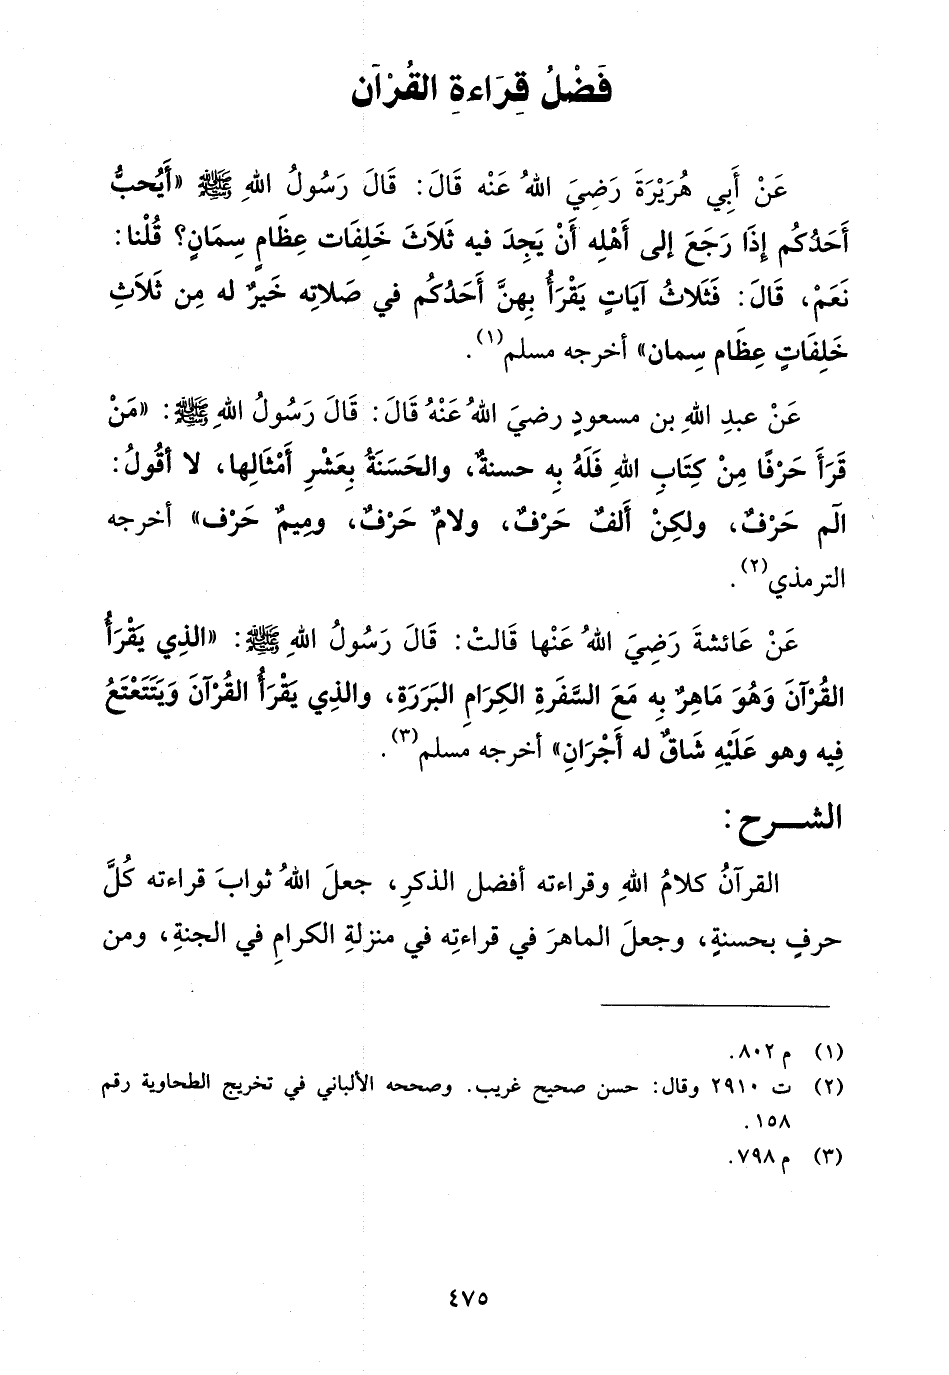 فَضْلُ قِرَاءةِ القُرْآن
عَنْ أَبِي هُرَيْرَةَ رَضِيَ اللهُ عَنْه قَالَ: قَالَ رَسُولُ اللهِ ﷺ «أَيُحبُّ
أَحَدُكُم إِذَا رَجَعَ إلى أَهْلِه أَنْ يَجِدَ فيه ثَلَاثَ خَلِفَات عِظَامٍ سِمَانٍ؟ قُلْنا:
نَعَمْ، قَالَ: فَثَلاثُ آيَاتٍ يَقْرَأُ بِهنَّ أَحَدُكُم في صَلاتِه خَيرٌ له مِن ثَلَاثِ
خَلِفَاتٍ عِظَام سِمان» أخرجه مسلم(١).
عَنْ عبدِ اللهِ بن مسعودٍ رضيَ اللهُ عَنْهُ قَالَ: قَالَ رَسُولُ اللهِ ﷺ: «مَنْ
قَرَأَ حَرْفًا مِنْ كِتَابِ اللهِ فَلَهُ بِه حسنةٌ، والحَسَنَةُ بِعَشْرِ أَمْثَالِها، لا أقُولُ:
الَم حَرْفٌ، ولكِنْ أَلفٌ حَرْفٌ، ولامٌ حَرْفٌ، ومِيمٌ حَرْف» أخرجه
الترمذي(٢).
عَنْ عَائشةَ رَضِيَ اللهُ عَنْها قَالتْ: قَالَ رَسُولُ اللهِ ﷺ: «الذِي يَقْرَأُ
القُرْآنَ وَهُوَ مَاهِرٌ بِه مَعَ السَّفَرةِ الكِرَامِ البَرَرَةِ، والذِي يَقْرَأُ القُرْآنَ وَيَتَتَعْتَعُ
فِيه وهو عَلَيْهِ شَاقٌ له أَجْرَانِ» أخرجه مسلم(٣).
الشـــرح:
القرآنُ كلامُ اللهِ وقراءته أفضل الذكرِ، جعلَ اللهُ ثوابَ قراءته كُلَّ
حرفٍ بحسنةٍ، وجعلَ الماهرَ في قراءتِه في منزلةِ الكرامِ في الجنةِ، ومن
(١) م ٨٠٢.
(٢) ت ٢٩١٠ وقال: حسن صحيح غريب. وصححه الألباني في تخريج الطحاوية رقم
١٥٨.
(٣) م ٧٩٨.
٤٧٥